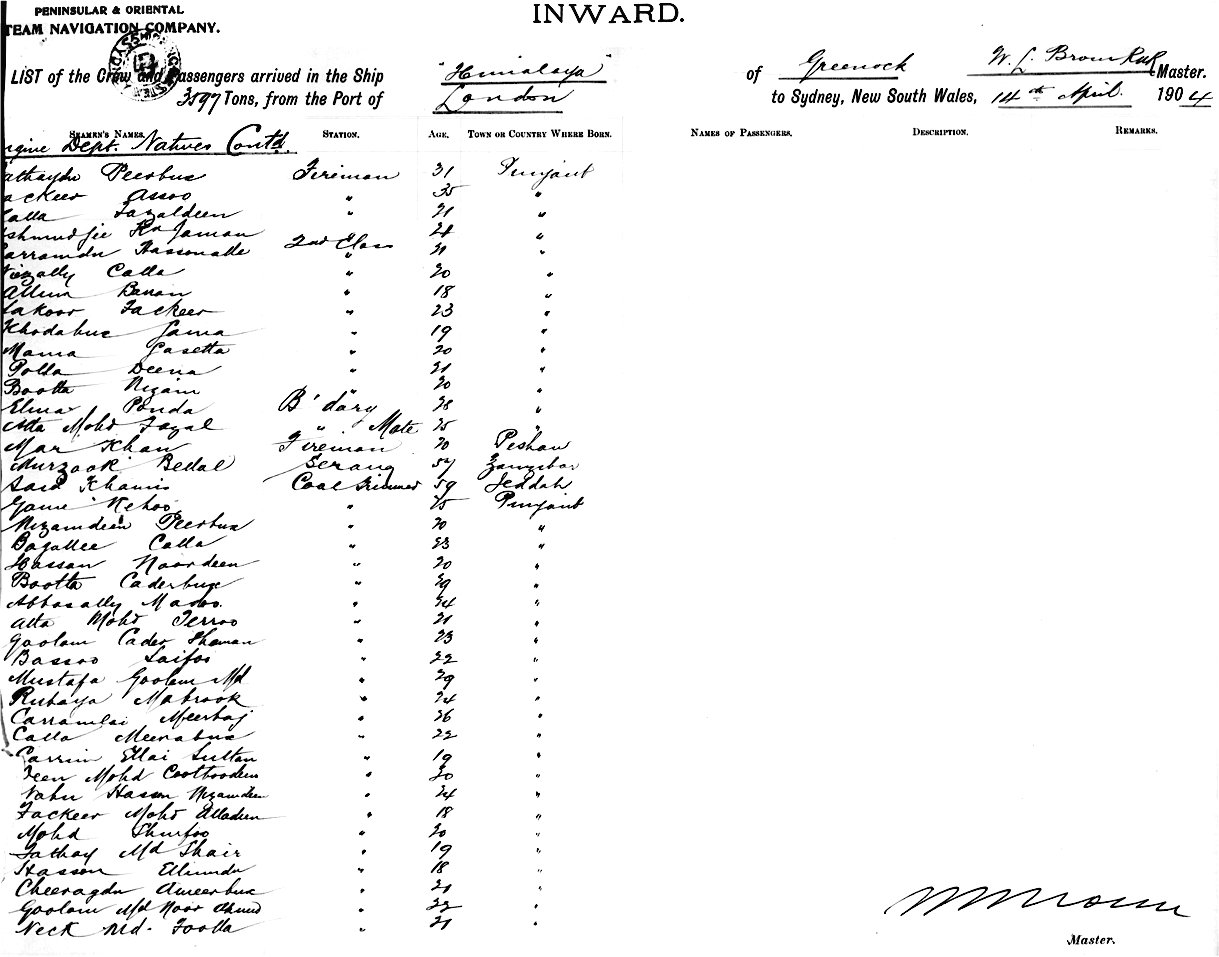 PENINSULAR & ORIENTAL
TEAM NAVIGATION COMPANY.
INWARD.
LIST of the Crew and Passengers arrived in the Ship "Himalaya" of Greenock W. L. Broun Master.
3597 Tons, from the Port of London to Sydney, New South Wales, 14th April. 1904
SEAMEN'S NAMES. STATION. AGE. TOWN OR COUNTRY WHERE BORN. NAMES OF PASSENGERS. DESCRIPTION. REMARKS.
ngine Dept. Natives Contd.
Peerbux Fireman 31 Punjaut
ackeer Assoo " 35 "
Calla Fazaldeen " 21 "
Jaman 24 "
Hassonalle 2nd Class " 21 "
Calla " 20 "
Allim " 18 "
Fackeer " 23 "
Khodabux Jama " 19 "
Mama Jasetta " 20 "
Polla Deena " 21 "
Bootta Nizam " 20 "
Elma Ponda B'dary 28 "
Atta Mohd Fazal " Mate 25 "
Mar Khan Fireman 20 Peshau
Murzook Bellal Serang 57 Zanzibar
Said Khamis Coal Trimmer 59 Jeddah
Game Kehoo " 25 Punjaut
Nizamdeen Peerbux " 20 "
Bagallee Calla " 23 "
Hassan Noordeen " 20 "
Bootta Caderbux " 29 "
Abbasally Madoo. " 24 "
Atta Mohd Ferroo " 21 "
Goolam Cader Shaman " 23 "
Bassoo Saifoo " 22 "
Mustafa Goolam Md " 29 "
Rubaya Mabrook " 24 "
Carramlai Meerbaj " 26 "
Calla Meerabux " 22 "
Carrim Ellai Sultan " 19 "
Deen Mohd Cootboodeen " 20 "
Nabu Hassan Nizamdeen " 24 "
Fackeer Mohd Alladeen " 18 "
Mohd Shurfoo " 20 "
Fathay Md Shair " 19 "
Hassan " 18 "
Cheeragdn Ameerbux " 21 "
Goolam Md Noor Ahmed " 22 "
Neck Md. Foolla " 21 "
Master.